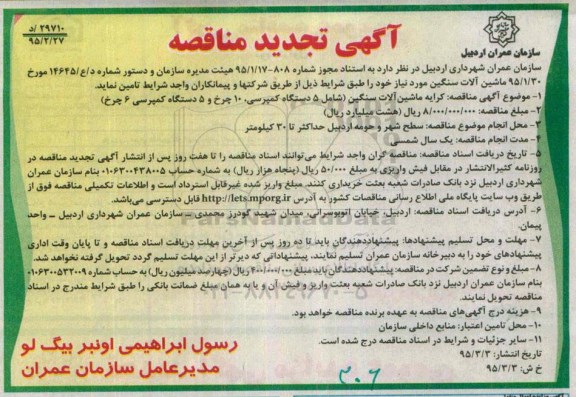 ۲۹۷۱۰ /د
۹۵/۲/۲۷
آگهی تجدید مناقصه
سازمان عمران اردبیل
سازمان عمران شهرداری اردبیل در نظر دارد به استناد مجوز شماره ۸۰۸-۹۵/۱/۱۷ هیئت مدیره سازمان و دستور شماره د/ع/۱۴۶۴۵ مورخ
۹۵/۱/۳۰ ماشین آلات سنگین مورد نیاز خود را طبق شرایط ذیل از طریق شرکتها و پیمانکاران واجد شرایط تامین نماید.
۱- موضوع آگهی مناقصه: کرایه ماشین‌آلات سنگین (شامل ۵ دستگاه کمپرسی، ۱۰ چرخ و ۵ دستگاه کمپرسی ۶ چرخ)
۲- مبلغ مناقصه: ۸/۰۰۰/۰۰۰/۰۰۰ ریال (هشت میلیارد ریال)
۳- محل انجام موضوع مناقصه: سطح شهر و حومه اردبیل حداکثر تا ۳۰ کیلومتر
۴- مدت انجام مناقصه: یک سال شمسی
۵- تاریخ دریافت اسناد مناقصه: مناقصه گران واجد شرایط می‌توانند اسناد مناقصه را تا هفت روز پس از انتشار آگهی تجدید مناقصه در
روزنامه کثیرالانتشار در مقابل فیش واریزی به مبلغ ۵۰/۰۰۰ ریال (پنجاه هزار ریال) به شماره حساب ۰۱۰۶۳۰۰۴۳۸۰۰۵ بنام سازمان عمران
شهرداری اردبیل نزد بانک صادرات شعبه بعثت خریداری کنند. مبلغ واریز شده غیرقابل استرداد است و اطلاعات تکمیلی مناقصه فوق از
طریق وب سایت پایگاه ملی اطلاع رسانی مناقصات کشور به آدرس http://iets.mporg.ir قابل دسترسی می‌باشد.
۶- آدرس دریافت اسناد مناقصه: اردبیل، خیابان اتوبوسرانی، میدان شهید گودرز محمدی - سازمان عمران شهرداری اردبیل - واحد
پیمان.
۷- مهلت و محل تسلیم پیشنهادها: پیشنهاددهندگان باید تا ده روز پس از آخرین مهلت دریافت اسناد مناقصه و تا پایان وقت اداری
پیشنهادهای خود را به دبیرخانه سازمان عمران تسلیم نمایند. پیشنهاداتی که دیرتر از این مهلت تسلیم گردد تحویل گرفته نخواهد شد.
۸- مبلغ و نوع تضمین شرکت در مناقصه: پیشنهاددهندگان باید مبلغ ۴۰۰/۰۰۰/۰۰۰ ریال (چهارصد میلیون ریال) به حساب شماره ۰۱۰۶۳۰۰۵۳۳۰۰۹
بنام سازمان عمران اردبیل نزد بانک صادرات شعبه بعثت واریز و فیش آن و یا به همان مبلغ ضمانت بانکی را طبق شرایط مندرج در اسناد
مناقصه تحویل نمایند.
۹- هزینه درج آگهی‌های مناقصه به عهده برنده مناقصه خواهد بود.
۱۰- محل تامین اعتبار: منابع داخلی سازمان
۱۱- سایر جزئیات و شرایط در اسناد مناقصه درج شده است.
تاریخ انتشار: ۹۵/۳/۳
خ ش: ۹۵/۳/۳
رسول ابراهیمی اونبر بیگ لو
مدیرعامل سازمان عمران
۲۰۶
ParsNamadData
۰۲۱-۸۸۳۴۹۶۷۰-۵